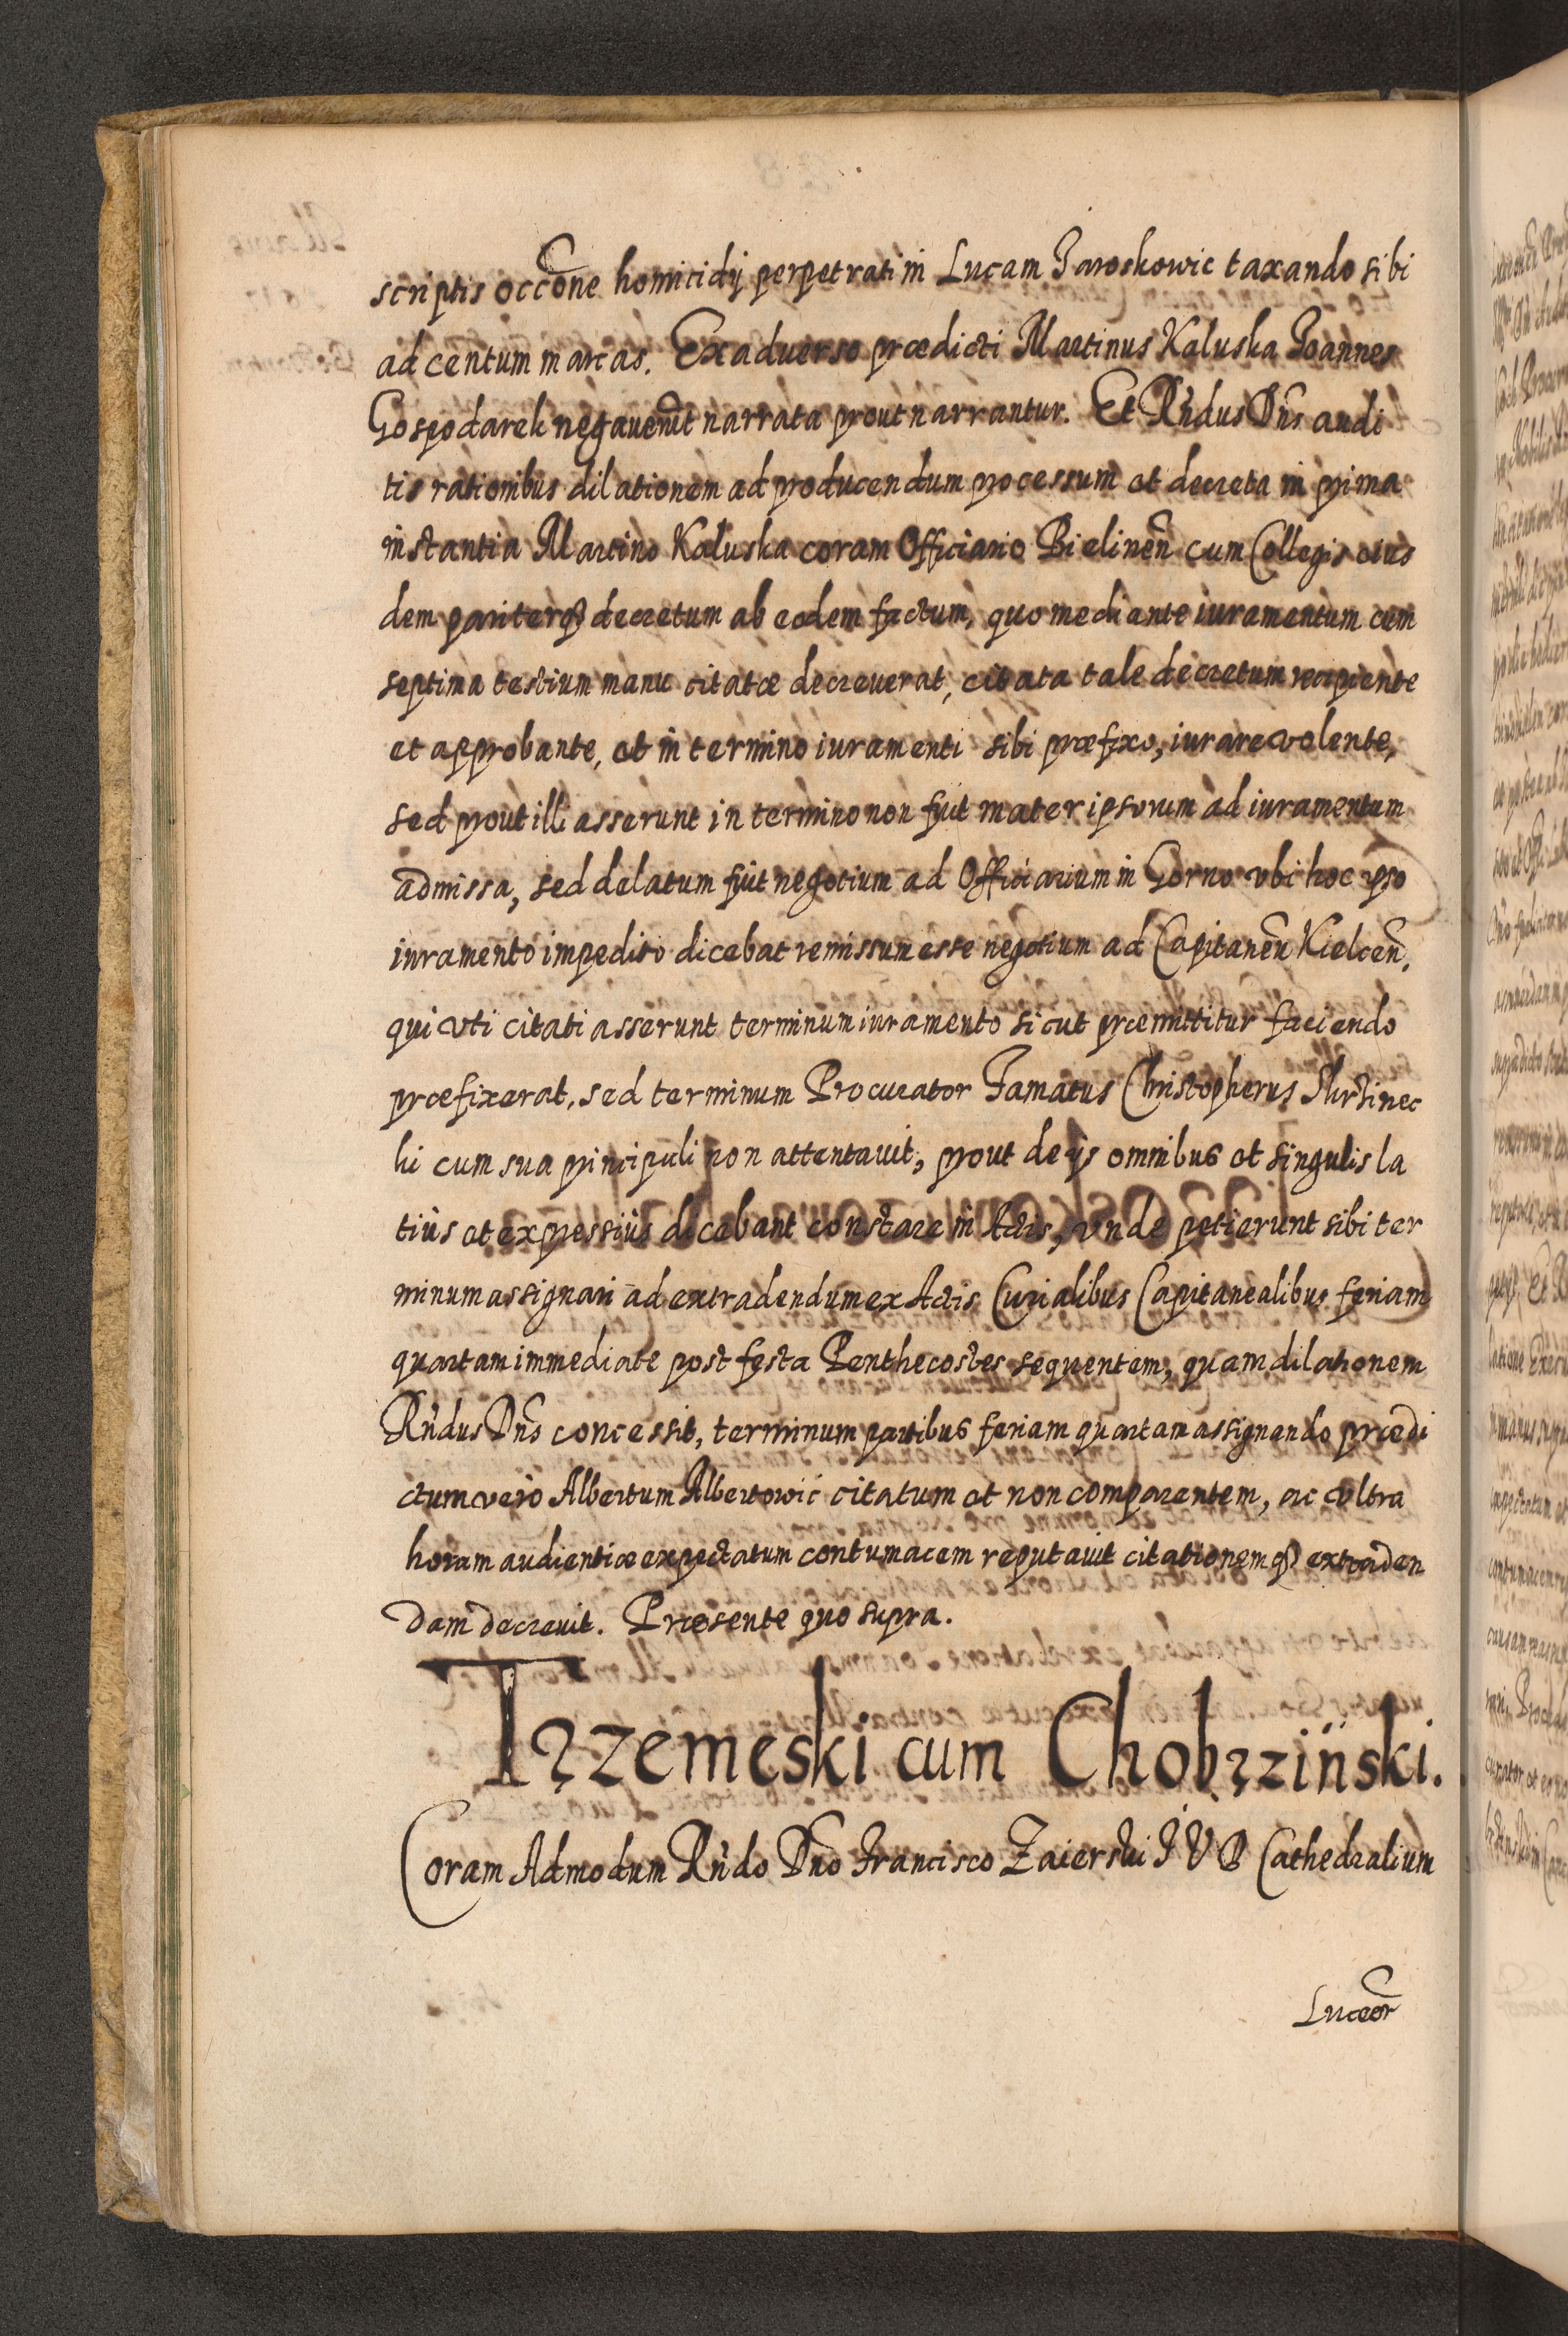 scriptis occõne homicidÿ perpetrati in Lucam Jaroskowic taxando sibi
ad centum marcas. Ex aduerso prædicti Martinus Kaluska Joannes
Gospodarek negauerũt narrata prout narrantur. Et Rndus Dns audi
tis rationibus dilationem ad producendum processum et decreta in prima
instantia Martino Kaluska coram Officiario Bielinẽn cum Collegis eius
dem pariterq decretum ab eodem factum, quo mediante iuramentum cum
septima testium manu citatæ decreuerat, citata tale decretum recipiente
et approbante, et in termino iuramenti sibi præfixo, iurare volente,
sed prout illi asserunt in termino non fuit mater ipsorum ad iuramentum
admissa, sed delatum fuit negotium ad Officiarium in Gorno vbi hoc ipso
iuramento impedito dicebat remissum esse negotium ad Capitanẽu Kielcẽn,
qui vti citati asserunt terminum iuramento sicut præmittitur faciendo
præfixerat, sed terminum Procurator Famatus Christopherus
ki cum sua principali non attentauit, prout de ijs omnibus et singulis la
tiùs et expressiùs dicebant constare in Actis, vnde petierunt sibi ter
minum assignari ad extradendum ex Actis Curialibus Capitanealibus feriam
quartam immediate post festa Penthecostes sequentem, quam dilationem
Rndus Dns concessit, terminum partibus feriam quartam assignando prædi
ctum verò Albertum Albertowic citatum et non comparentem, ac vltra
horam audientiæ expectatum contumacem reputauit citationemq extraden
dam decreuit. Præsente quo supra.
Trzemeski cum Chobrziński.
Coram Admodum Rndo Dno Francisco Zaierski J V D Cathedralium
Luceor